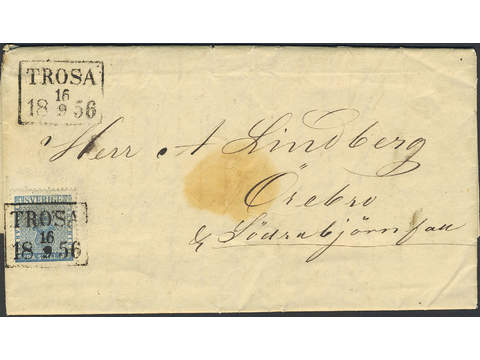 TROSA
16
18 9 56
Herr A Lindberg
Örebro
& Södrabjörnfall
SVERIGE
TROSA
16
18 9 56